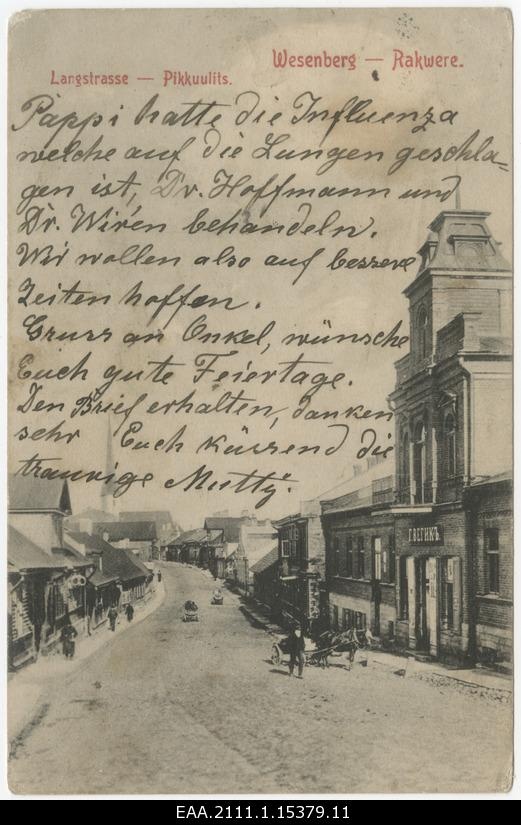 Wesenberg — Rakwere.
Langstrasse — Pikkuulits.
Pappi hatte die Influenza
welche auf die Lungen geschla=
gen ist, Dr. Hoffmann und
Dr. Wirén behandeln.
Wir wollen also auf bessere
Zeiten hoffen.
Gruss an Onkel, wünsche
Euch gute Feiertage.
Den Brief erhalten, danken
sehr Euch küssend die
traurige Mutty.
Г.ВЕГИКЪ.
EAA.2111.1.15379.11